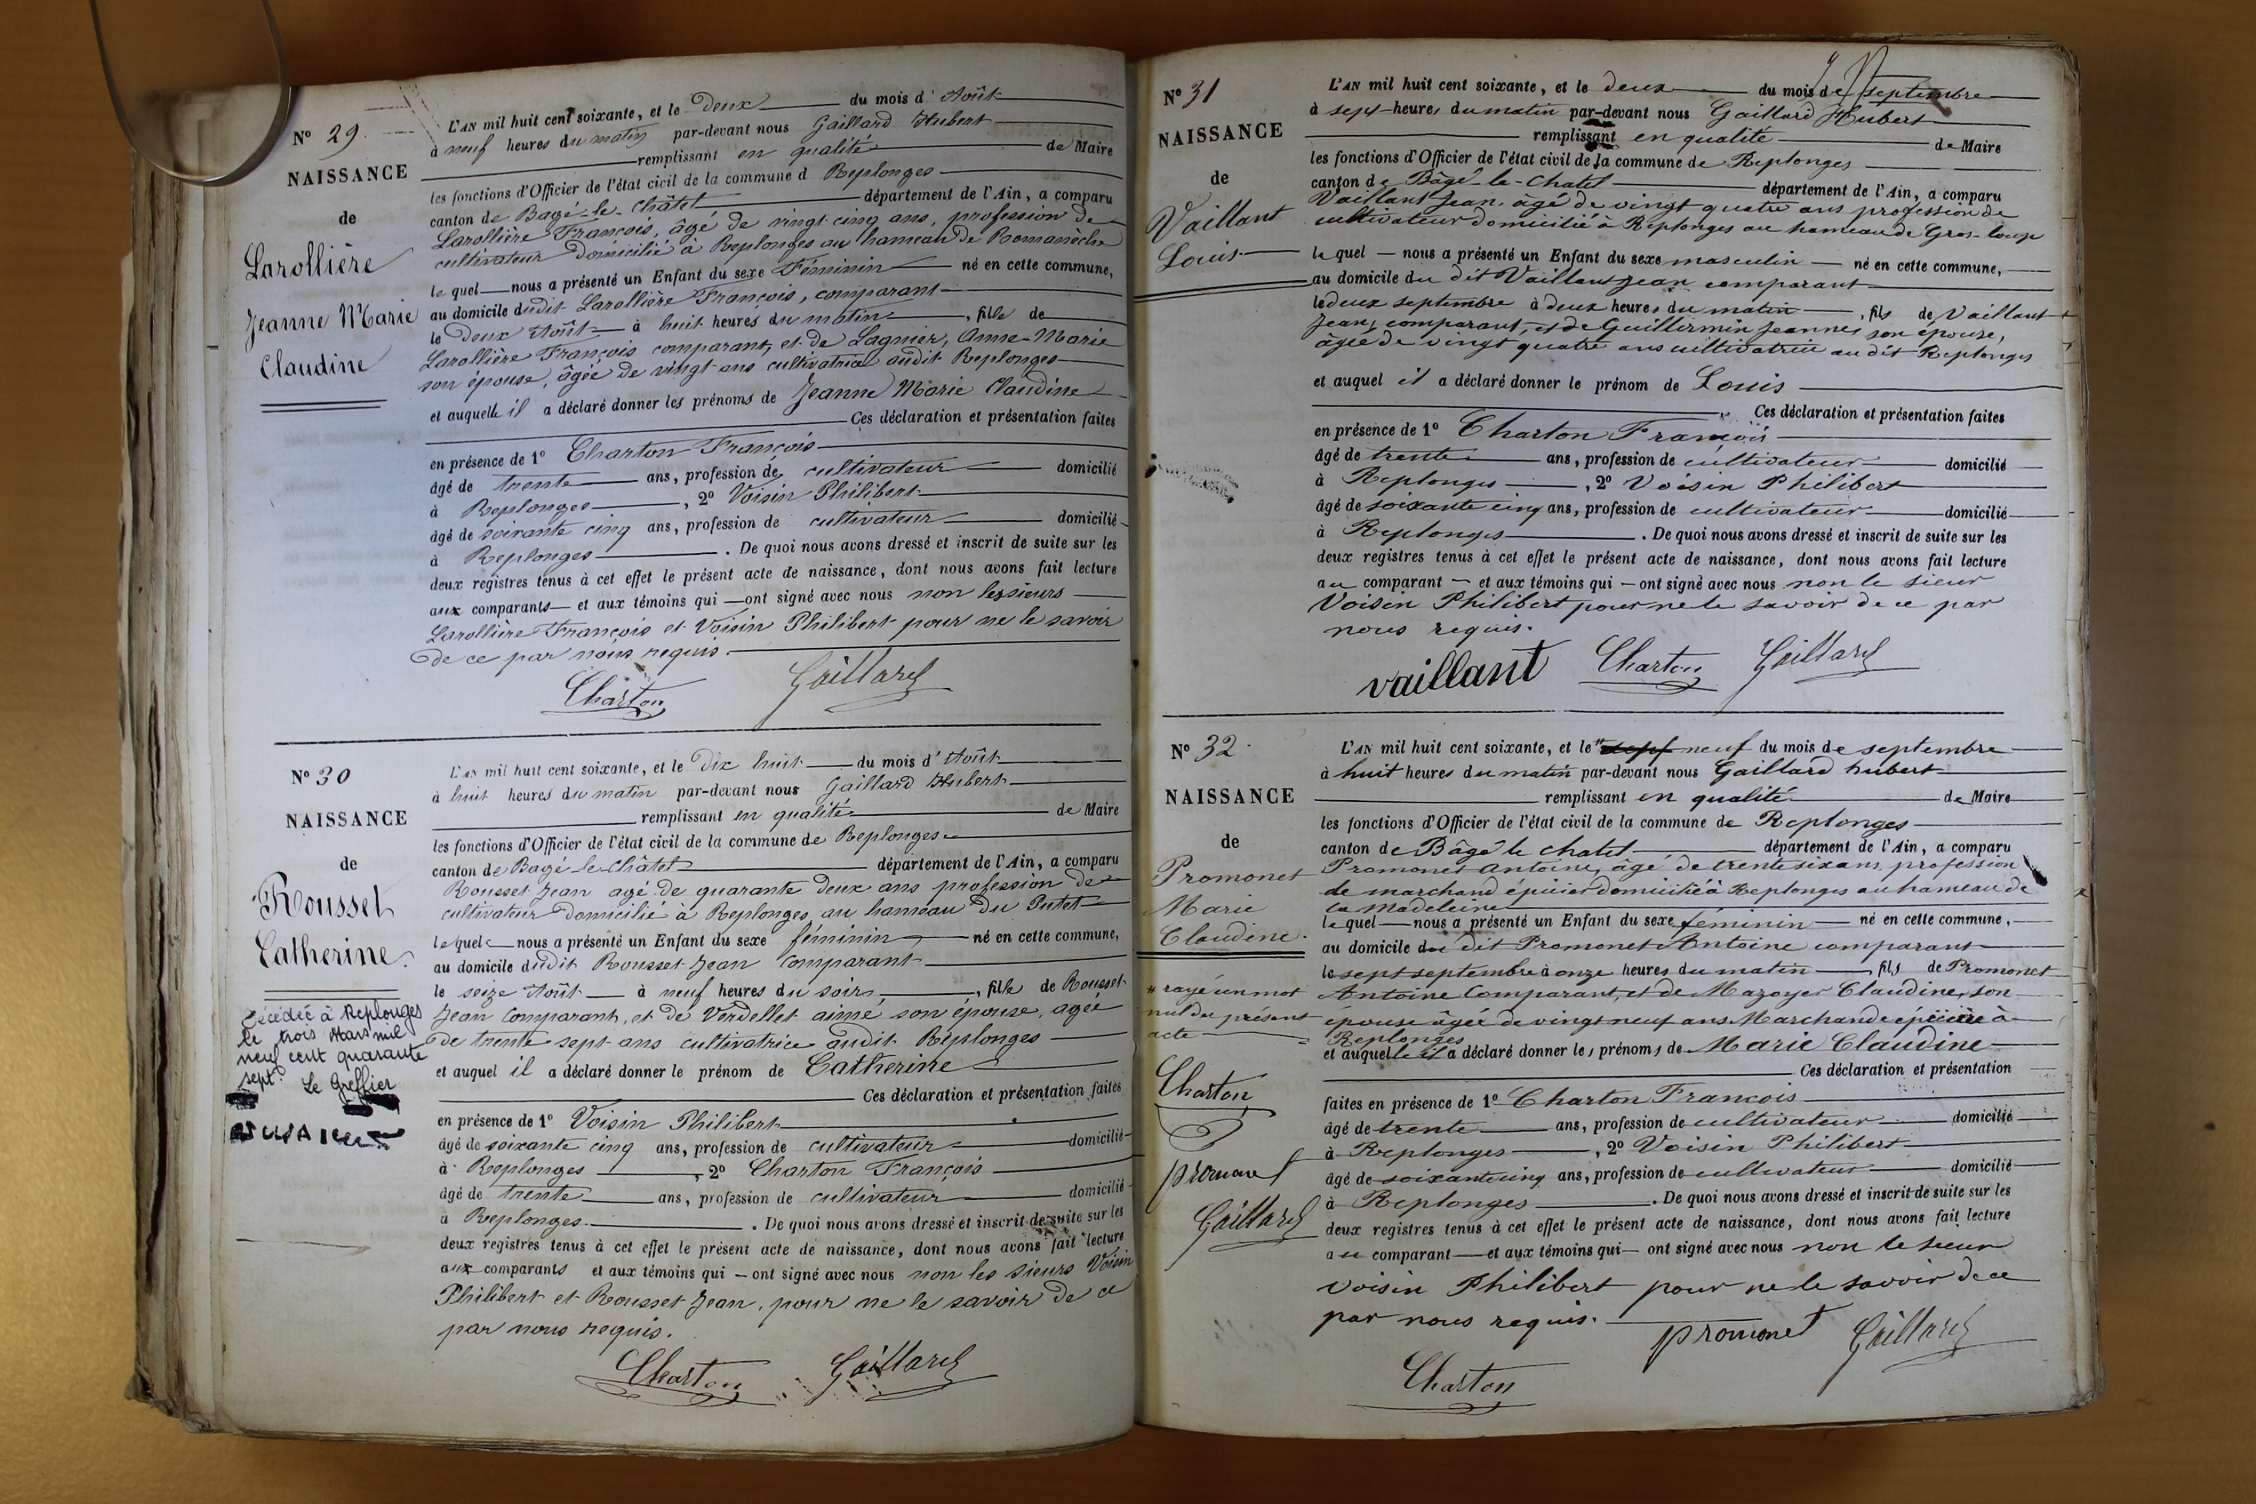 N° 29.
NAISSANCE
de
Larollière
Jeanne Marie
Claudine
L'AN mil huit cent soixante, et le deux du mois d'Août
à neuf heures du matin par-devant nous Gaillard Hubert
remplissant en qualité de Maire
les fonctions d'Officier de l'état civil de la commune d Replonges
canton de Bagé-le-Châtel département de l'Ain, a comparu
Larollière François, âgé de vingt cinq ans, profession de
cultivateur domicilié à Replonges au hameau de Romanèche
lequel nous a présenté un Enfant du sexe Féminin né en cette commune,
au domicile dudit Larollière François, comparant
le deux Août à huit heures du matin, fille de
Larollière François comparant, et de Lagnier, Anne-Marie
son épouse, âgée de vingt ans cultivatrice audit Replonges
et auquelle il a déclaré donner les prénoms de Jeanne Marie Claudine
Ces déclaration et présentation faites
en présence de 1° Charton François
âgé de trente ans, profession de cultivateur domicilié
à Replonges, 2° Voisin Philibert
âgé de soixante cinq ans, profession de cultivateur domicilié
à Replonges. De quoi nous avons dressé et inscrit de suite sur les
deux registres tenus à cet effet le présent acte de naissance, dont nous avons fait lecture
aux comparants et aux témoins qui ont signé avec nous non les sieurs
Larollière François et Voisin Philibert pour ne le savoir
de ce par nous requis.
Charton Gaillard
N° 30
NAISSANCE
de
Rousset
Catherine.
Décédée à Replonges
le trois Mars mil
neuf cent quarante
sept. Le Greffier
L'AN mil huit cent soixante, et le dix huit du mois d'Août
à huit heures du matin par-devant nous Gaillard Hubert
remplissant en qualité de Maire
les fonctions d'Officier de l'état civil de la commune de Replonges
canton de Bagé-le-Châtel département de l'Ain, a comparu
Rousset Jean agé de quarante deux ans profession de
cultivateur domicilié à Replonges au hameau du Putet
lequel nous a présenté un Enfant du sexe féminin né en cette commune,
au domicile dudit Rousset Jean comparant
le seize Août à neuf heures du soir, fille de Rousset
Jean comparant, et de Verdellet aimé son épouse, agée
de trente sept ans cultivatrice audit Replonges
et auquel il a déclaré donner le prénom de Catherine
Ces déclaration et présentation faites
en présence de 1° Voisin Philibert
âgé de soixante cinq ans, profession de cultivateur domicilié
à Replonges, 2° Charton François
âgé de trente ans, profession de cultivateur domicilié
à Replonges. De quoi nous avons dressé et inscrit de suite sur les
deux registres tenus à cet effet le présent acte de naissance, dont nous avons fait lecture
aux comparants et aux témoins qui ont signé avec nous non les sieurs Voisin
Philibert et Rousset Jean, pour ne le savoir de ce
par nous requis.
Charton Gaillard
N° 31
NAISSANCE
de
Vaillant
Louis
L'AN mil huit cent soixante, et le deux du mois de septembre
à sept heures du matin par-devant nous Gaillard Hubert
remplissant en qualité de Maire
les fonctions d'Officier de l'état civil de la commune de Replonges
canton de Bâgé-le-Chatel département de l'Ain, a comparu
Vaillant Jean, âgé de vingt quatre ans profession de
cultivateur domicilié à Replonges au hameau de Gros-loup
lequel nous a présenté un Enfant du sexe masculin né en cette commune,
au domicile du dit Vaillant Jean comparant
le deux septembre à deux heures du matin, fils de Vaillant
Jean, comparant, et de Guillermin Jeanne, son épouse,
agée de vingt quatre ans cultivatrice au dit Replonges
et auquel il a déclaré donner le prénom de Louis
Ces déclaration et présentation faites
en présence de 1° Charton François
âgé de trente ans, profession de cultivateur domicilié
à Replonges, 2° Voisin Philibert
âgé de soixante cinq ans, profession de cultivateur domicilié
à Replonges. De quoi nous avons dressé et inscrit de suite sur les
deux registres tenus à cet effet le présent acte de naissance, dont nous avons fait lecture
au comparant et aux témoins qui ont signé avec nous non le sieur
Voisin Philibert pour ne le savoir de ce par
nous requis.
vaillant Charton Gaillard
N° 32.
NAISSANCE
de
Promonet
Marie
Claudine.
rayé un mot
nul du présent
acte
Charton
promonet
Gaillard
L'AN mil huit cent soixante, et le sept neuf du mois de septembre
à huit heures du matin par-devant nous Gaillard hubert
remplissant en qualité de Maire
les fonctions d'Officier de l'état civil de la commune de Replonges
canton de Bâgé le chatel département de l'Ain, a comparu
Promonet Antoine, âgé de trente six ans, profession
de marchand épicier domicilié à Replonges au hameau de
la Madeleine
lequel nous a présenté un Enfant du sexe féminin né en cette commune,
au domicile du dit Promonet Antoine comparant
le sept septembre à onze heures du matin, fils de Promonet
Antoine Comparant, et de Mazoyer Claudine, son
epouse âgée de vingt neuf ans Marchande épicière à
Replonges
et auquelle il a déclaré donner les prénoms de Marie Claudine
Ces déclaration et présentation
faites en présence de 1° Charton François
âgé de trente ans, profession de cultivateur domicilié
à Replonges, 2° Voisin Philibert
âgé de soixante cinq ans, profession de cultivateur domicilié
à Replonges. De quoi nous avons dressé et inscrit de suite sur les
deux registres tenus à cet effet le présent acte de naissance, dont nous avons fait lecture
au comparant et aux témoins qui ont signé avec nous non le sieur
voisin Philibert pour ne le savoir de ce
par nous requis.
promonet Gaillard
Charton